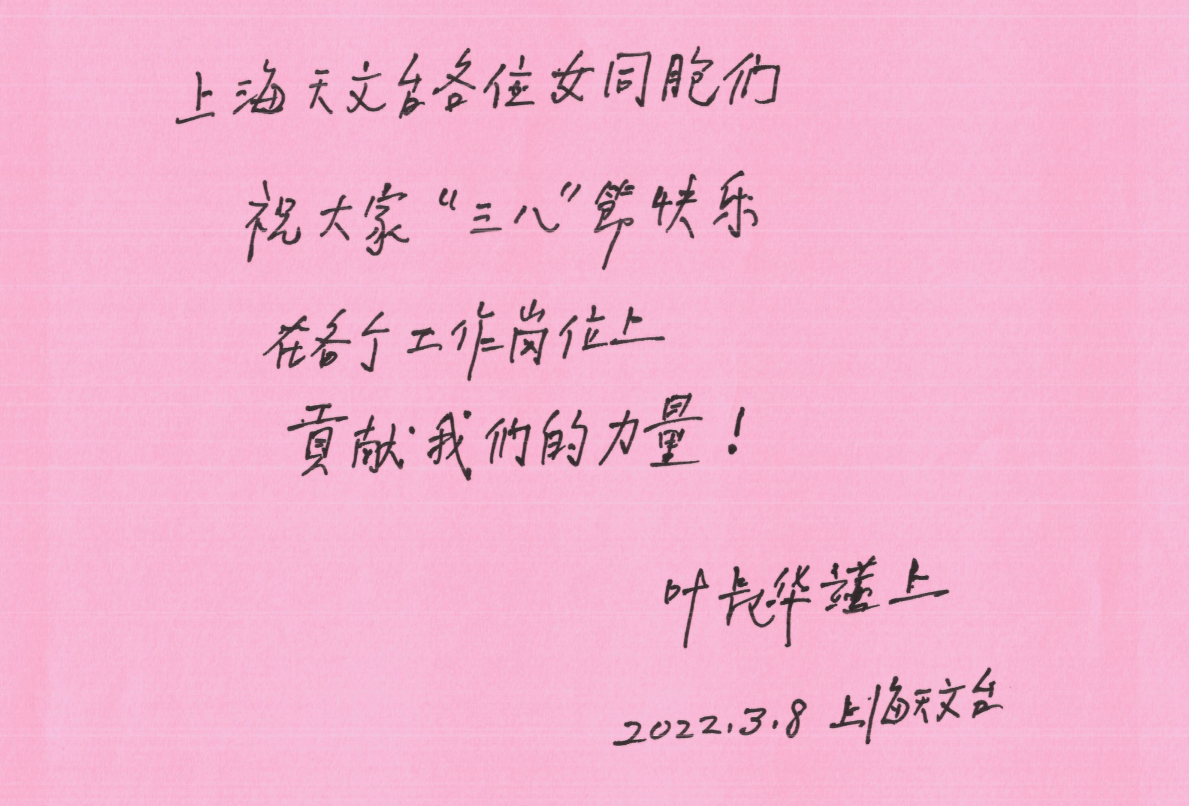 上海天文台各位女同胞们
祝大家“三八”節快乐
在各个工作岗位上
貢献我们的力量！
叶长华謹上
2022.3.8 上海天文台